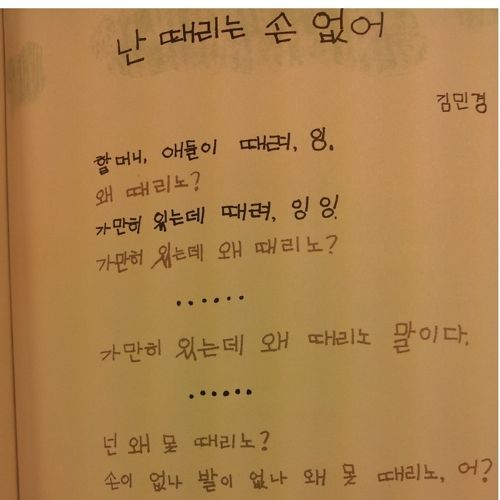 난 때리는 손 없어
김민경
할머니, 애들이 때려, 잉.
왜 때리노?
가만히 있는데 때려, 잉 잉.
가만히 있는데 왜 때리노?
......
가만히 있는데 왜 때리노 말이다.
......
넌 왜 못 때리노?
손이 없나 발이 없나 왜 못 때리노, 어?